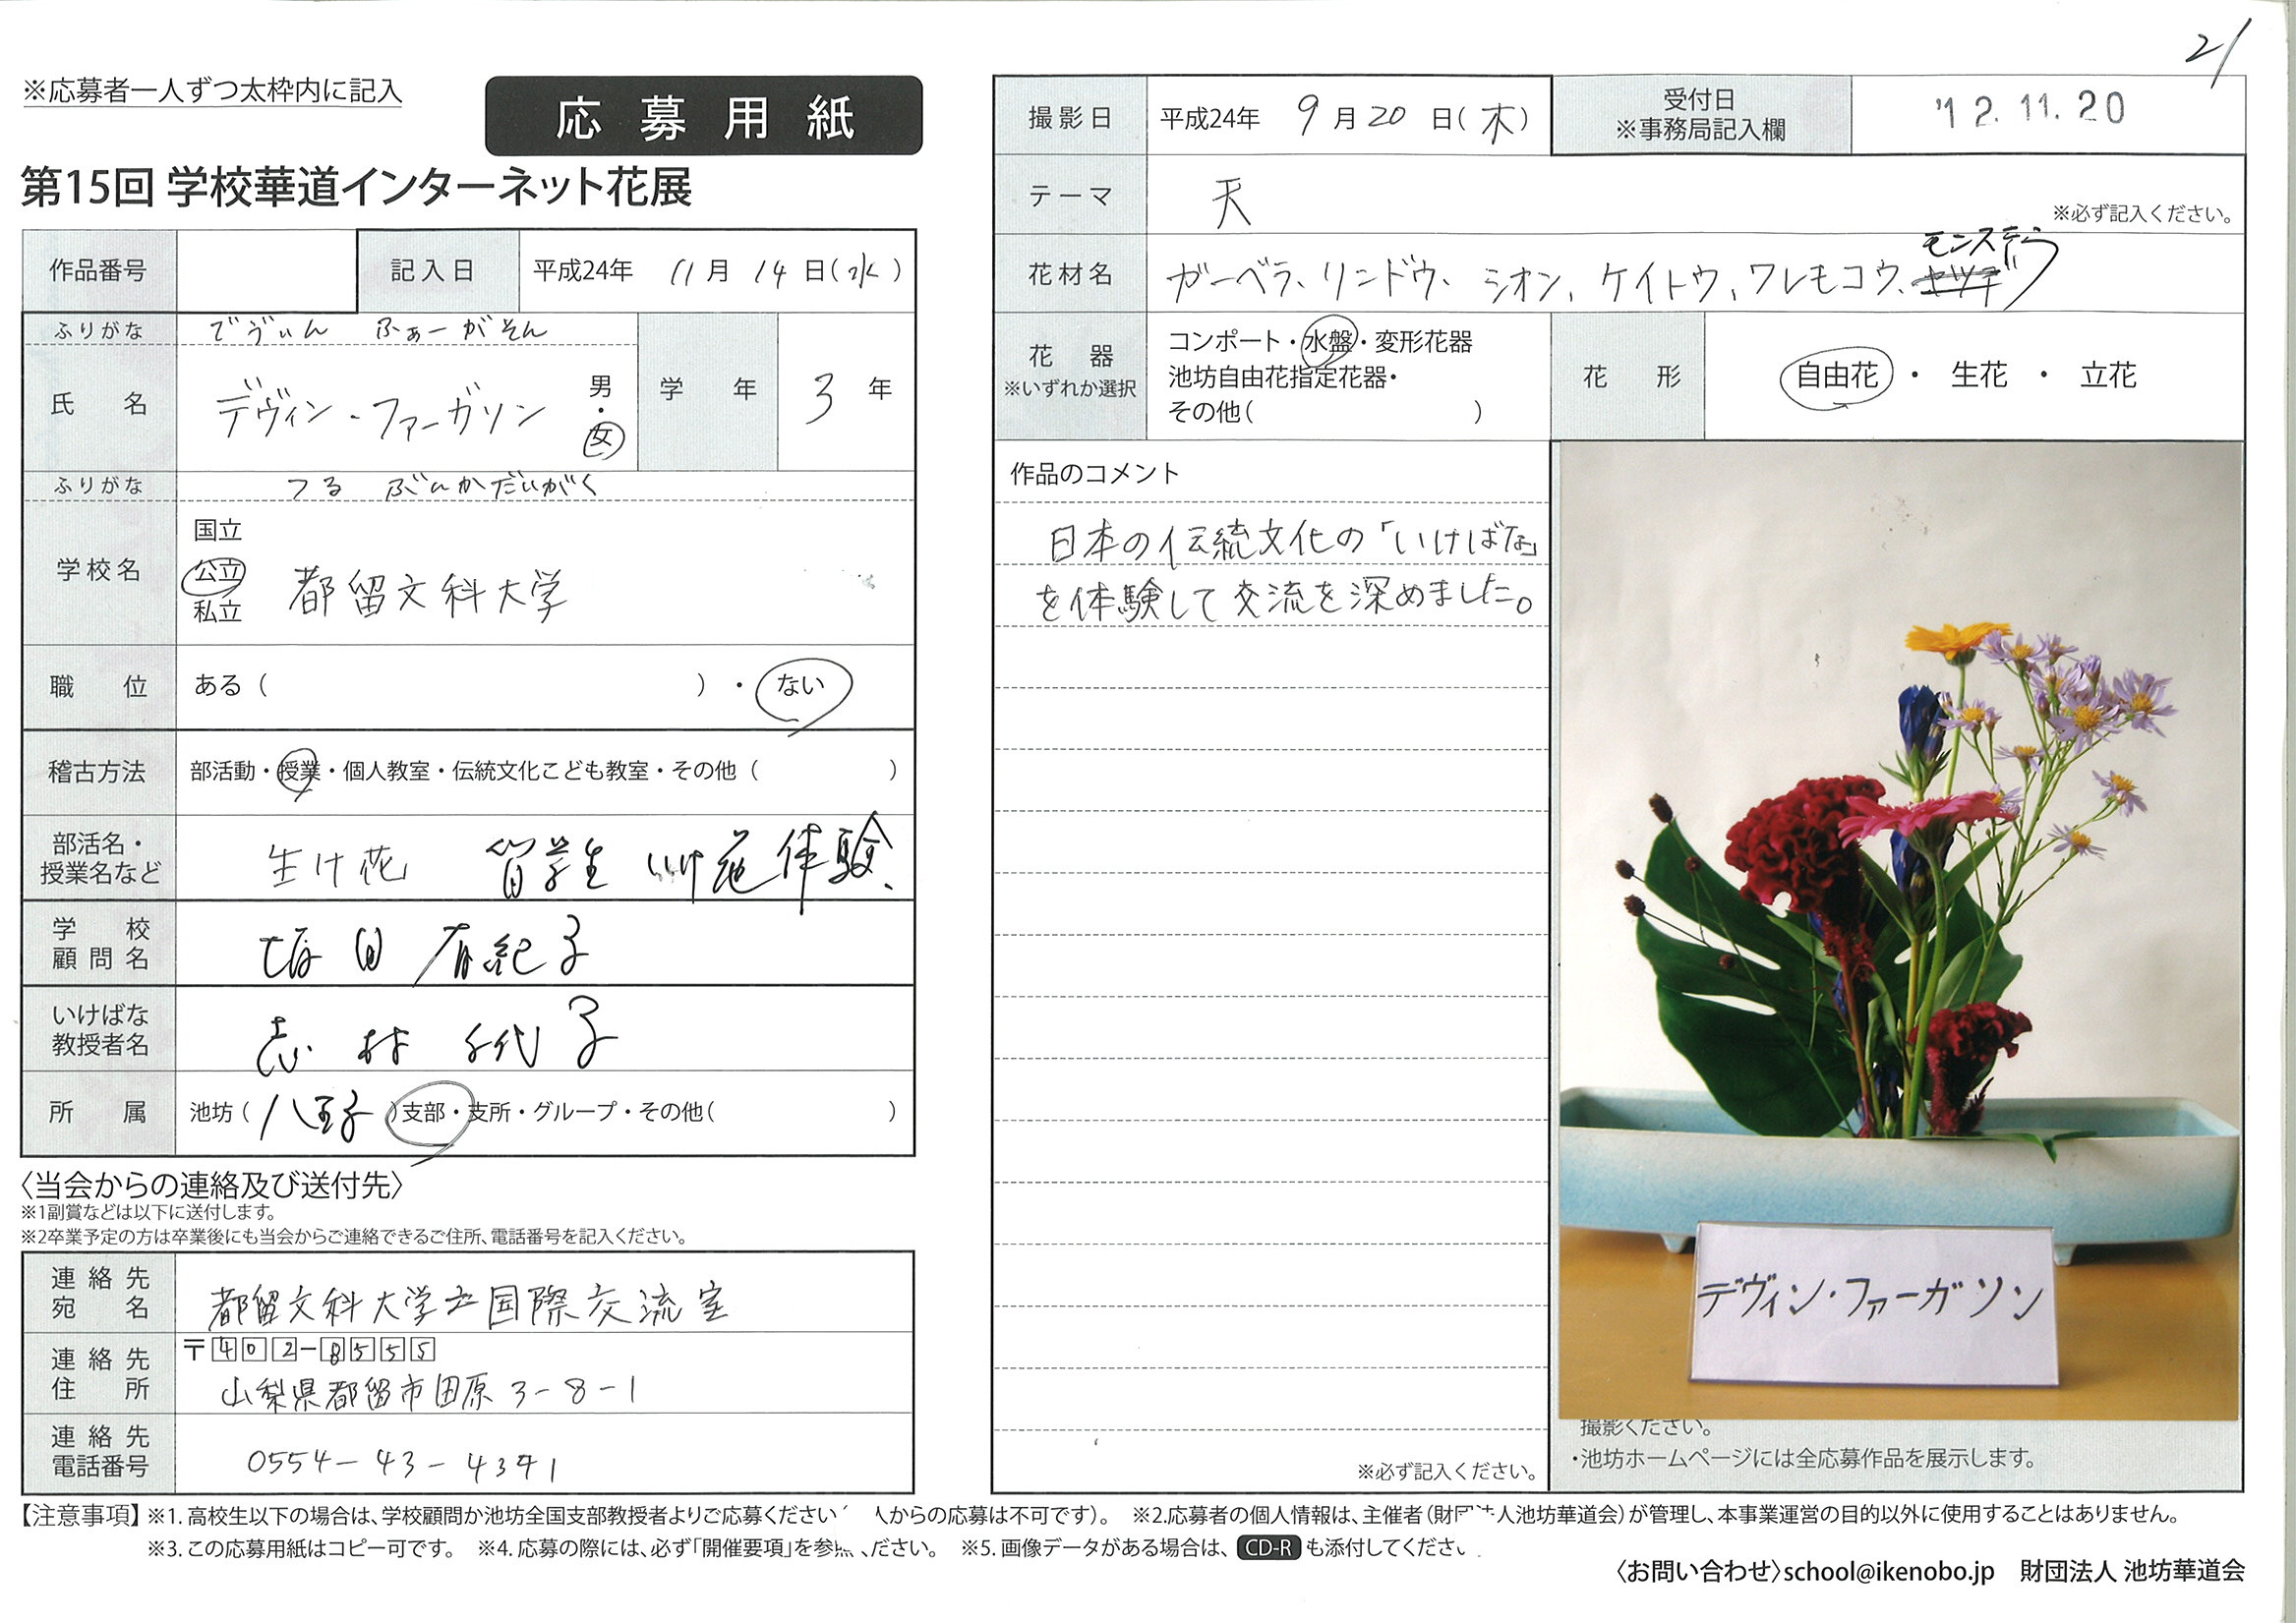 21
※応募者一人ずつ太枠内に記入
応募用紙
第15回 学校華道インターネット花展
作品番号
記入日 平成24年 11月 14日(水)
ふりがな でヴぃん ふぁーがそん
氏名 デヴィン・ファーガソン 男・女
学年 3年
ふりがな つる ぶんかだいがく
学校名 国立 公立 私立 都留文科大学
職位 ある( )・ない
稽古方法 部活動・授業・個人教室・伝統文化こども教室・その他( )
部活名・授業名など 生け花 留学生 いけ花体験、
学校顧問名 坂田 有紀子
いけばな教授者名 志村 千代子
所属 池坊(八王子)支部・支所・グループ・その他( )
〈当会からの連絡及び送付先〉
※1副賞などは以下に送付します。
※2卒業予定の方は卒業後にも当会からご連絡できるご住所、電話番号を記入ください。
連絡先宛名 都留文科大学 国際交流室
連絡先住所 〒402-8555
山梨県都留市田原3-8-1
連絡先電話番号 0554-43-4341
撮影日 平成24年 9月20日(木)
受付日 ※事務局記入欄 '12.11.20
テーマ 天
※必ず記入ください。
花材名 ガーベラ、リンドウ、シオン、ケイトウ、ワレモコウ、モンステラ
花器 ※いずれか選択
コンポート・水盤・変形花器
池坊自由花指定花器・
その他( )
花形 自由花・生花・立花
作品のコメント
日本の伝統文化の「いけばな」
を体験して交流を深めました。
※必ず記入ください。
デヴィン・ファーガソン
撮影ください。
・池坊ホームページには全応募作品を展示します。
【注意事項】※1.高校生以下の場合は、学校顧問か池坊全国支部教授者よりご応募ください 人からの応募は不可です)。 ※2.応募者の個人情報は、主催者(財団法人池坊華道会)が管理し、本事業運営の目的以外に使用することはありません。
※3.この応募用紙はコピー可です。 ※4.応募の際には、必ず「開催要項」を参照ください。 ※5.画像データがある場合は、CD-Rも添付してください。
〈お問い合わせ〉school@ikenobo.jp 財団法人 池坊華道会